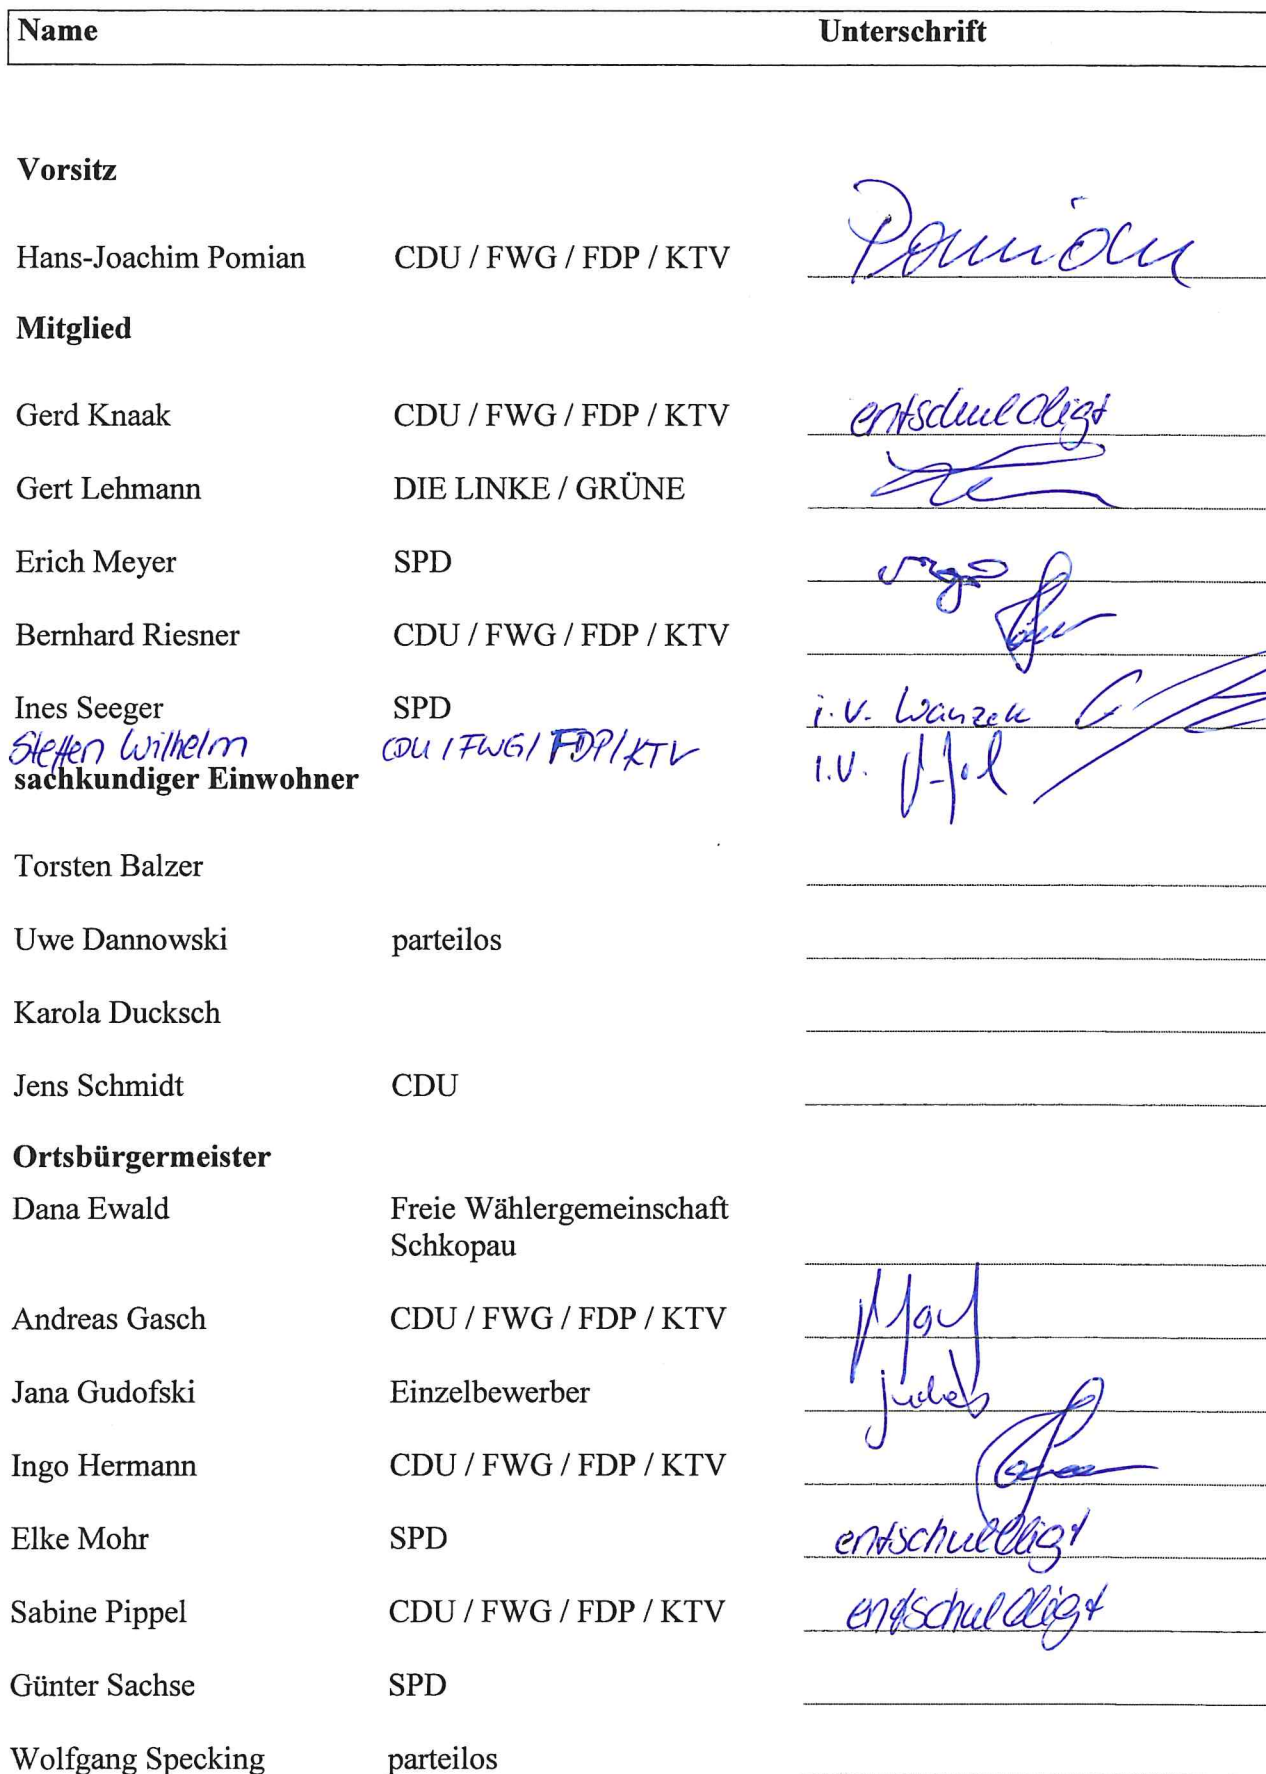 Name Unterschrift
Vorsitz
Hans-Joachim Pomian CDU / FWG / FDP / KTV Pomian
Mitglied
Gerd Knaak CDU / FWG / FDP / KTV entschuldigt
Gert Lehmann DIE LINKE / GRÜNE
Erich Meyer SPD
Bernhard Riesner CDU / FWG / FDP / KTV
Ines Seeger SPD i.V. Wanzek
Steffen Wilhelm CDU / FWG / FDP / KTV i.V.
sachkundiger Einwohner
Torsten Balzer
Uwe Dannowski parteilos
Karola Ducksch
Jens Schmidt CDU
Ortsbürgermeister
Dana Ewald Freie Wählergemeinschaft
Schkopau
Andreas Gasch CDU / FWG / FDP / KTV
Jana Gudofski Einzelbewerber
Ingo Hermann CDU / FWG / FDP / KTV
Elke Mohr SPD entschuldigt
Sabine Pippel CDU / FWG / FDP / KTV entschuldigt
Günter Sachse SPD
Wolfgang Specking parteilos